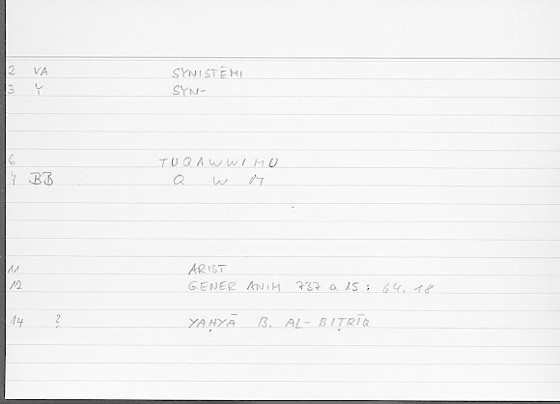 2 VA SYNISTĒMI
3 Y SYN-
6 TUQAWWIMU
7 BB Q W M
11 ARIST
12 GENER ANIM 737 a 15 : 64, 18
14 ? YAḤYĀ B. AL-BIṬRĪQ